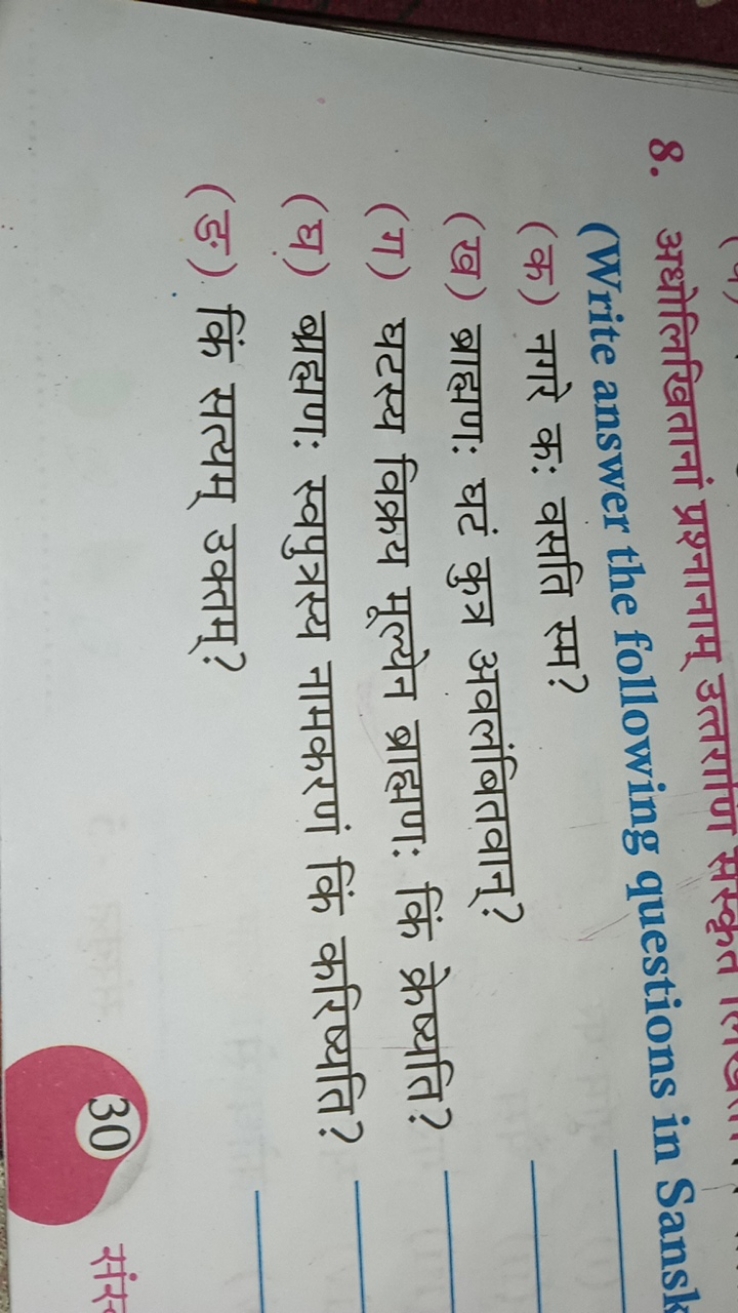 8. अधोलिखितानां प्रश्नानाम् उत्तराणि संस्कृते
(Write answer the following questions in Sansk
(क) नगरे कः वसति स्म?
(ख) ब्राह्मणः घटं कुत्र अवलंबितवान्?
(ग) घटस्य विक्रय मूल्येन ब्राह्मणः किं क्रेष्यति?
(घ) ब्राह्मणः स्वपुत्रस्य नामकरणं किं करिष्यति?
(ङ) किं सत्यम् उक्तम्?
30